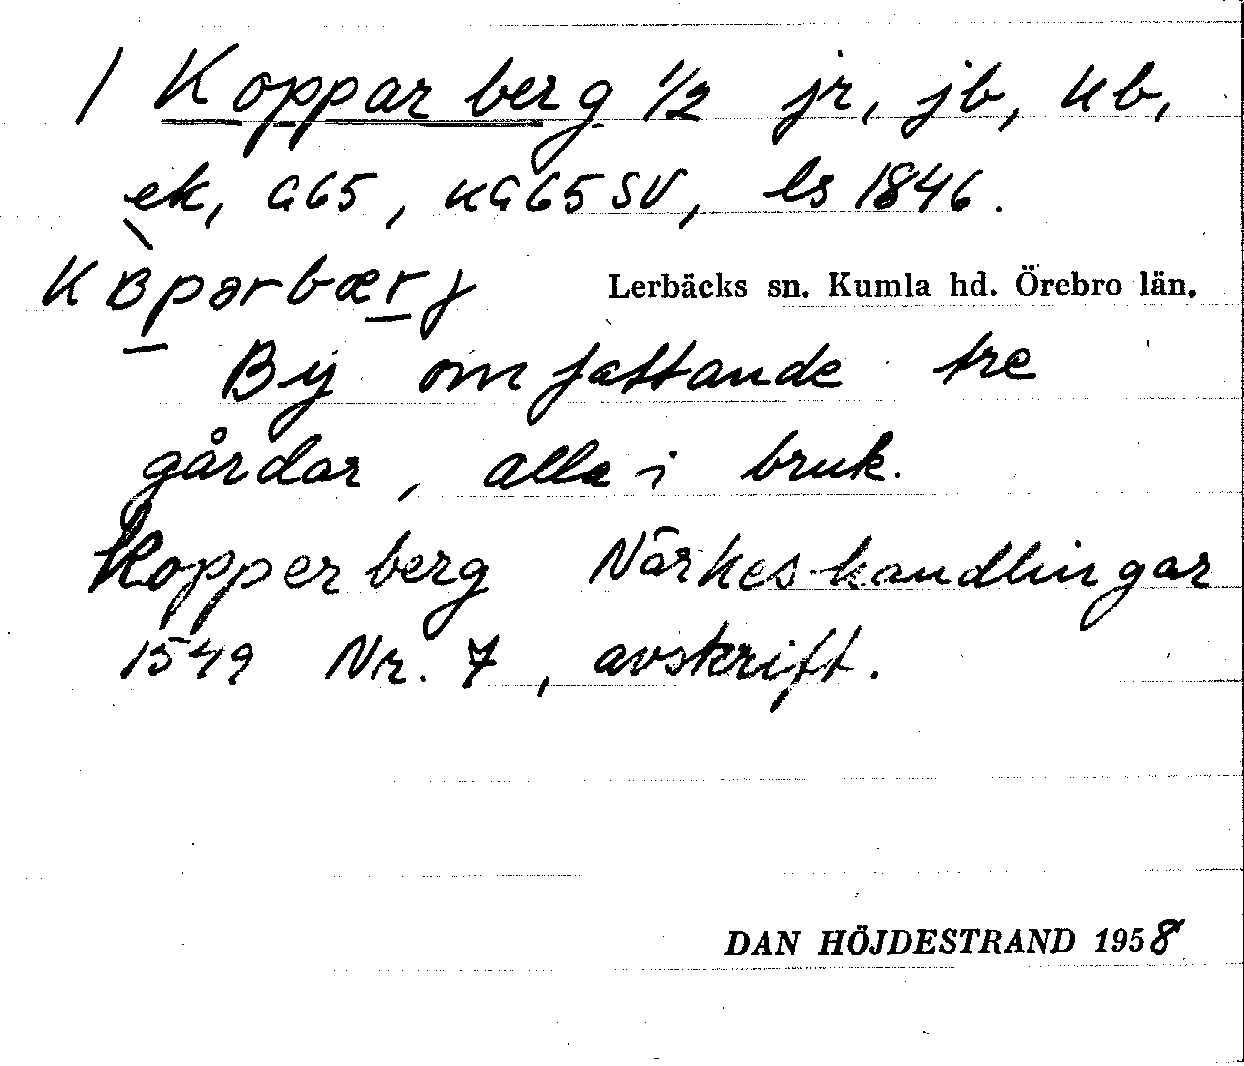 / Kopparberg 1/2 jr, jb, kb,
ek, G65, kG65SV, ls 1846.
Lerbäcks sn. Kumla hd. Örebro län.
By omfattande tre
gårdar, alla i bruk.
Kopperberg Närkeshandlingar
1549 Nr. 7, avskrift.
DAN HÖJDESTRAND 1958